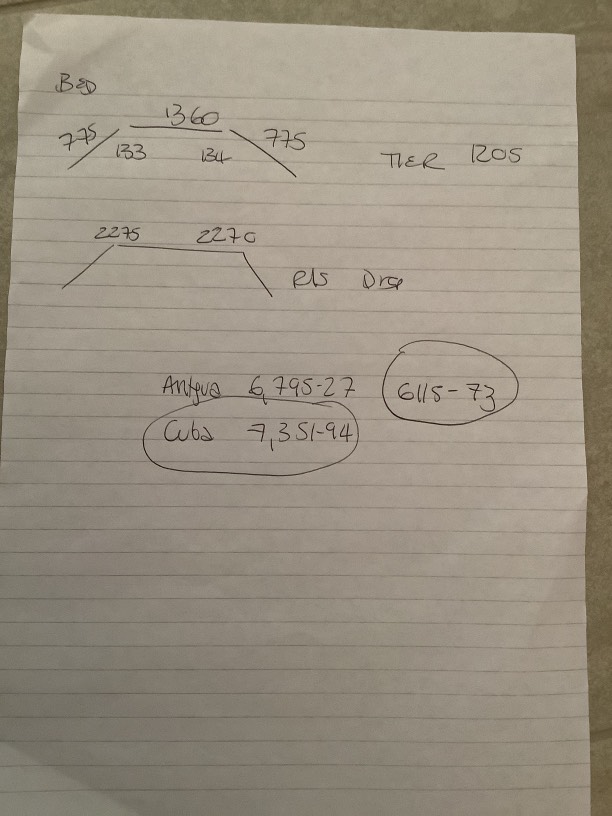 BED
1360
775 775
133 134 TIER 1205
2275 2270
RIS Drop
Antgua 6,795-27 6115-73
Cuba 7,351-94